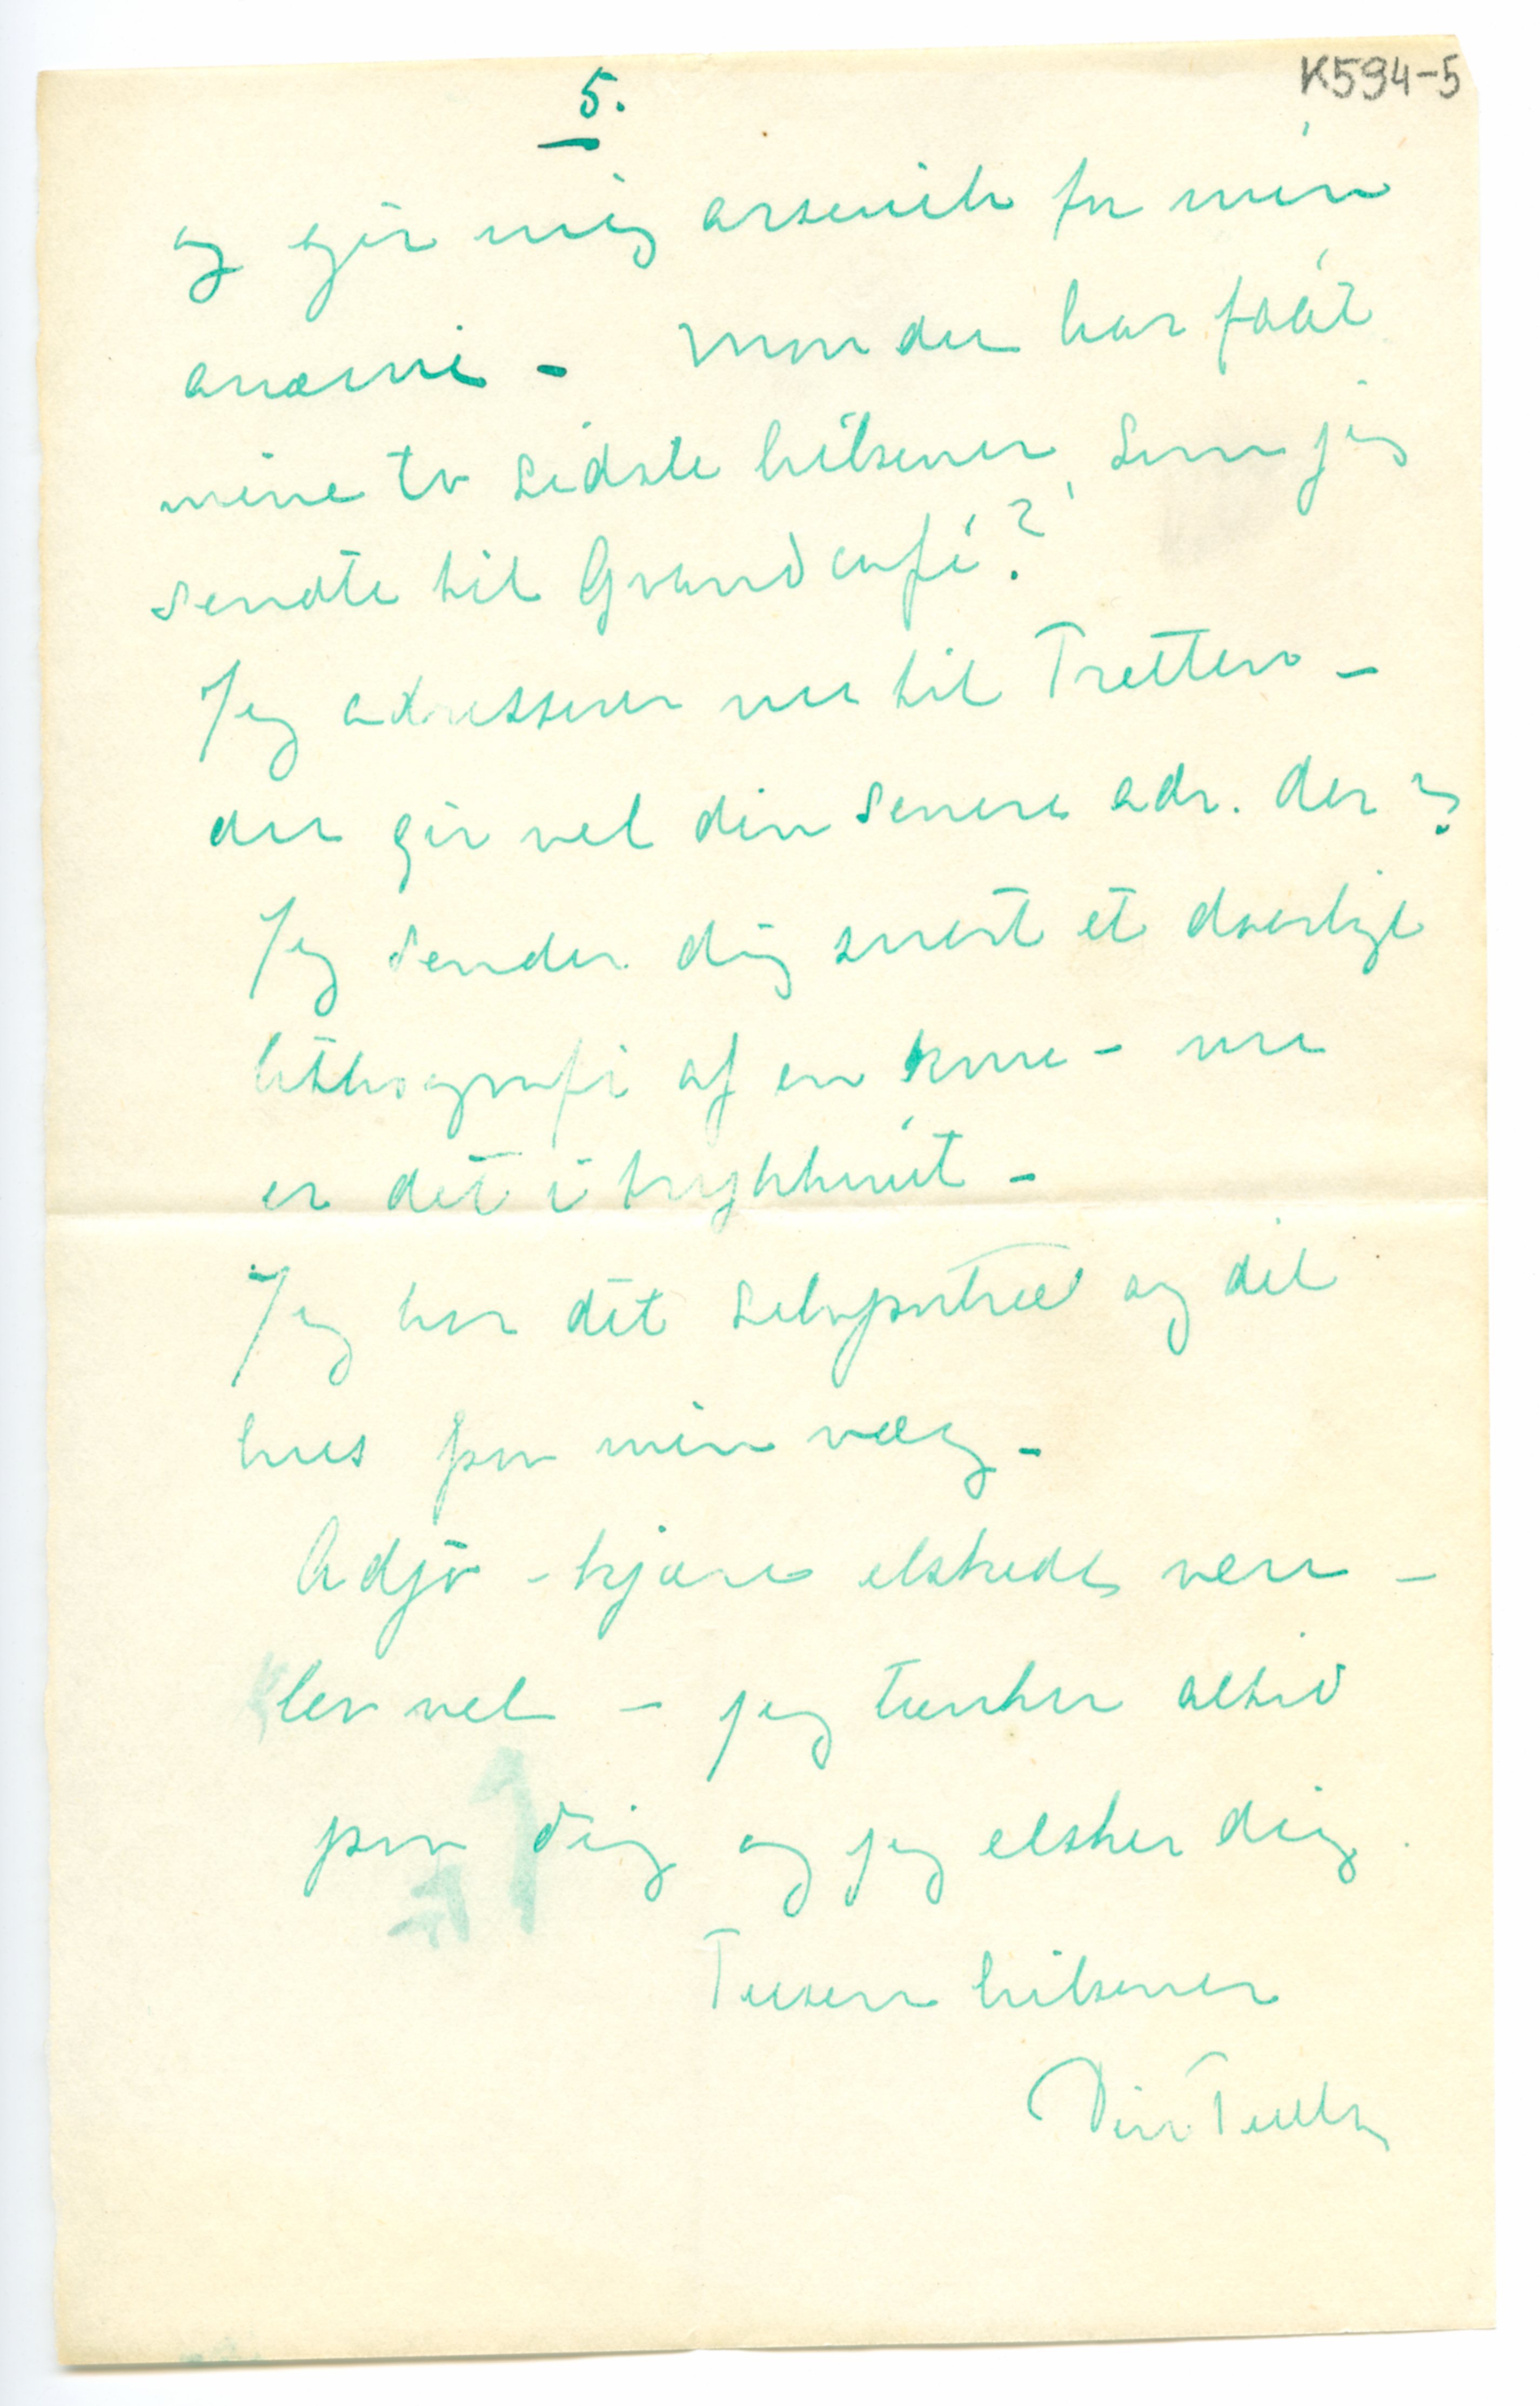 K594-5
5.
og gir mig arsenik for min
anæmi - Mon du har faåt
mine to sidste hilsener, som jeg
sendte til Grand café?
Jeg adresserer nu til Tretten -
du gir vel din senere adr. der?
Jeg sender dig snart et daarligt
lithografi af en kone - nu
er det i trykkeriet -
Jeg har dit selvportræt og dit
hus paa min væg -
Adjø - kjære elskede ven -
lev vel - jeg tænker altid
paa dig og jeg elsker dig.
Tusen hilsener
Din Tulla